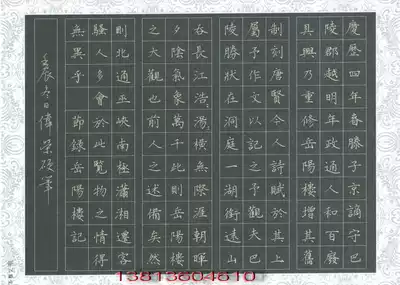 慶歷四年春滕子京謫守巴
陵郡越明年政通人和百廢
具興乃重修岳陽樓增其舊
制刻唐賢今人詩賦於其上
屬予作文以記之予觀夫巴
陵勝狀在洞庭一湖銜遠山
吞長江浩〻湯〻橫無際涯朝暉
夕陰氣象萬千此則岳陽樓
之大觀也前人之述備矣然
則北通巫峽南極瀟湘遷客
騷人多會於此覽物之情得
無異乎 節錄岳陽樓記
壬辰冬日偉榮硬筆
13813804610